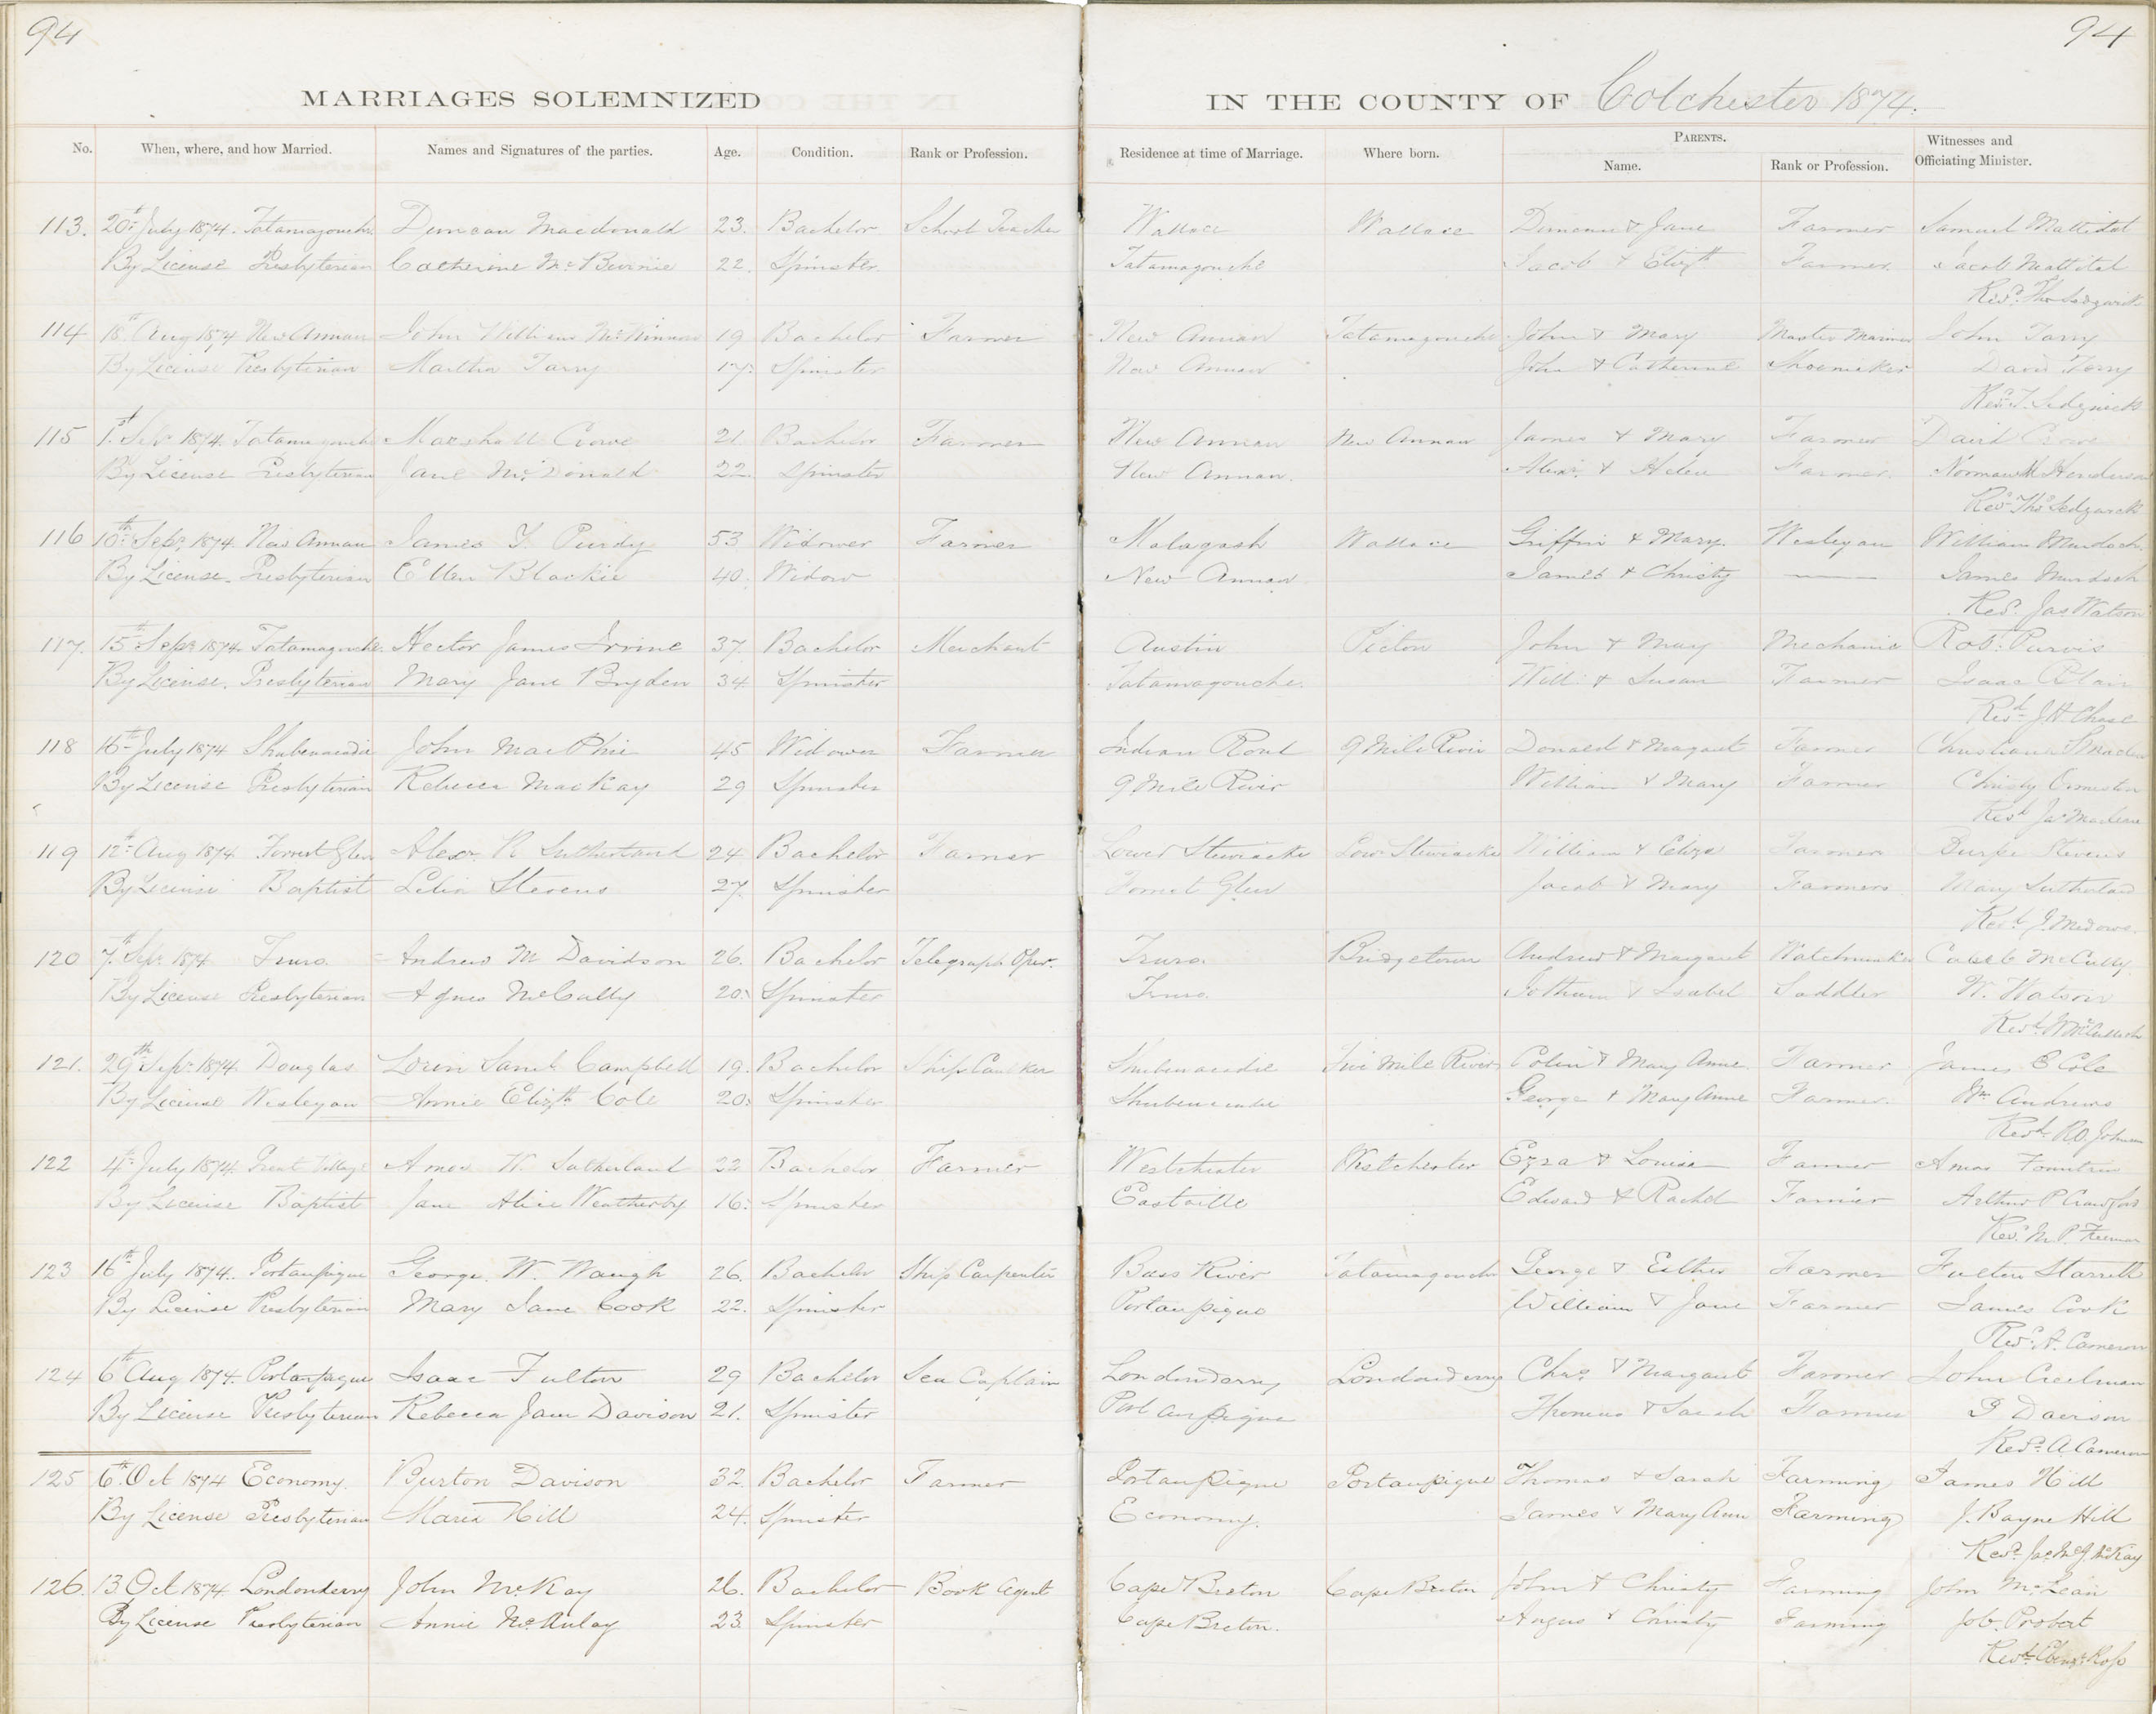 94
94
MARRIAGES SOLEMNIZED IN THE COUNTY OF Colchester 1874.
No. When, where, and how Married. Names and Signatures of the parties. Age. Condition. Rank or Profession. Residence at time of Marriage. Where born. PARENTS. Name. Rank or Profession. Witnesses and Officiating Minister.
113. 20th July 1874. Tatamagouche Duncan Macdonald 23. Bachelor School Teacher Wallace Wallace Duncan & Jane Farmer Samuel
By License Presbyterian Catherine 22. Spinster Tatamagouche Jacob & Elizth Farmer Jacob
Revd. Thos Sedgwick
114 18th Aug 1874 New Annan John William 19 Bachelor Farmer New Annan Tatamagouche John & Mary Master Mariner John Tarry
By License Presbyterian Martha Tarry 17. Spinster New Annan John & Catherine Shoemaker David
Revd. T. Sedgwick
115 1st Sepr 1874. Tatamagouche Marshall Crowe 21. Bachelor Farmer New Annan New Annan James & Mary Farmer David Crowe
By License Presbyterian Jane McDonald 22. Spinster New Annan. Alexr. & Helen Farmer. Norman M Henderson
Revd Thos Sedgwick
116 10th Sepr. 1874. New Annan James Y. Purdy 53 Widower Farmer Malagash Wallace Griffin & Mary. Wesleyan William Murdoch
By License. Presbyterian Ellen Blackie 40. Widow New Annan James & Christy James Murdoch
Revd. Jas Watson
117. 15th Sepr 1874. Tatamagouche. Hector James Irvine 37. Bachelor Merchant Austin Pictou John & Mary Mechanic Robt. Purvis
By License. Presbyterian Mary Jane Bryden 34 Spinster Tatamagouche. Will. & Susan Farmer Isaac Blair
Revd J H Chase
118 16th July 1874 Shubenacadie John MacPhie 45 Widower Farmer Indian Road 9 Mile River Donald & Margaret Farmer
By License Presbyterian Rebecca MacKay 29 Spinster 9 Mile River William & Mary Farmer Christy
Revd Jas Maclean
119 12th Aug 1874. Forrest Glen Alexr. R Sutherland 24 Bachelor Farmer Lower Stewiacke Low. Stewiacke William & Eliza Farmer Stevens
By License Baptist Stevens 27. Spinster Forrest Glen Jacob & Mary Farmers. Mary Sutherland
Revd J.
120 7th Sepr. 1874 Truro. Andrew M Davidson 26. Bachelor Telegraph Oper. Truro. Bridgetown Andrew & Margaret Watchmaker Caleb McCully
By License Presbyterian Agnes McCully 20. Spinster Truro. Jotham & Isabel Saddler W. Watson
Revd. W McCulloch
121. 29th Sepr. 1874. Douglas Lorin Saml. Campbell 19. Bachelor Ship Caulker Shubenacadie Five Mile River Colin & Mary Anne Farmer James E Cole
By License Wesleyan Annie Elizth Cole 20. Spinster Shubenacadie George & Mary Anne Farmer. Wm Andrews
Revd. R O Johnson
122 4th July 1874. Great Village Amos W. Sutherland 22 Bachelor Farmer Westchester Westchester Ezra & Louisa Farmer Amos Fountain
By License Baptist Jane Alice Weatherby 16. Spinster Eastville Edward & Rachel Farmer Arthur P Crawford
Revd. M. P. Freeman
123 16th July 1874. Portaupique George. W. Waugh 26. Bachelor Ship Carpenter Bass River Tatamagouche George & Esther Farmer Fulton Starrett
By License Presbyterian Mary Jane Cook 22. Spinster Portaupique William & Jane Farmer James Cook
Revd. A. Cameron
124 6th Aug 1874. Portaupique Isaac Fulton 29 Bachelor Sea Captain Londonderry Londonderry Chas. & Margaret Farmer John Creelman
By License Presbyterian Rebecca Jane Davison 21. Spinster Port aupique Thomas & Sarah Farmer Davison
Revd. A. Cameron
125 6th. Oct 1874 Economy. Burton Davison 32. Bachelor Farmer Portaupique Portaupique Thomas & Sarah Farming James Hill
By License Presbyterian Maria Hill 24. Spinster Economy. James & Mary Ann Farming J. Bayne Hill
Revd. Jas. McG. McKay
126. 13 Oct 1874 Londonderry John McKay 26. Bachelor Book Agent Cape Breton Cape Breton John & Christy Farming John McLean
By License Presbyterian Annie McAulay 23. Spinster Cape Breton. Angus & Christy Farming Job. Probert
Revd. Ebenzr. Ross